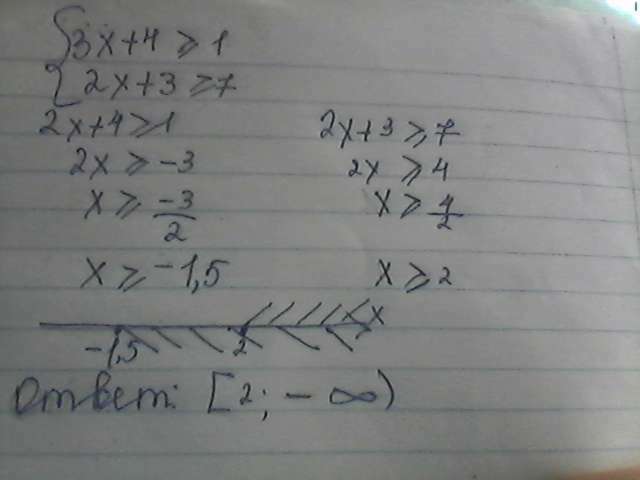 {3x+4 ≥ 1
{2x+3 ≥ 7
2x+4 ≥ 1 2x+3 ≥ 7
2x ≥ -3 2x ≥ 4
x ≥ -3/2 x ≥ 4/2
x ≥ -1,5 x ≥ 2
-1,5 2 x
Ответ: [2; -∞)